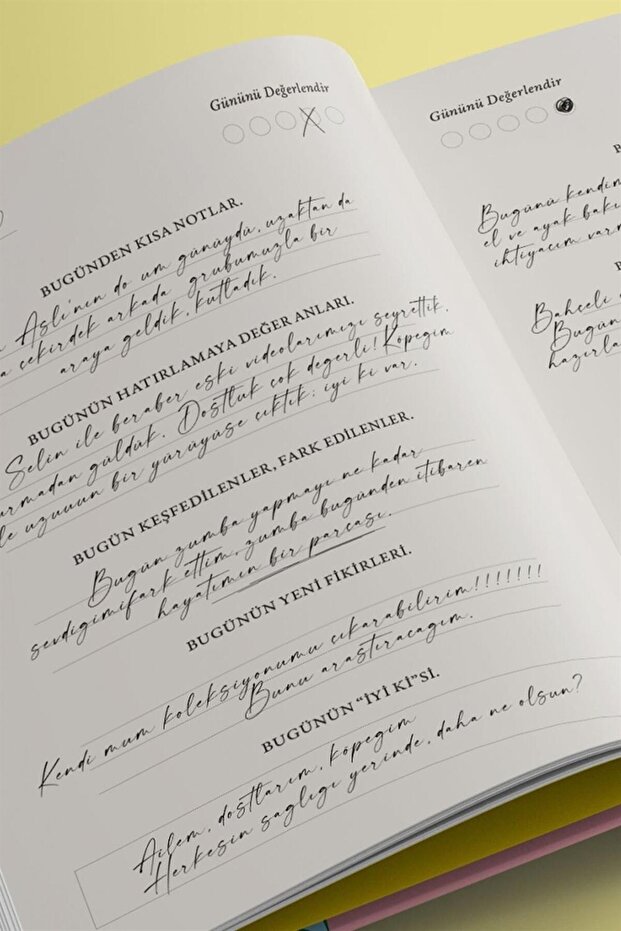 Gününü Değerlendir
BUGÜNDEN KISA NOTLAR.
Aslı'nın do um günüydü, uzaktan da
çekirdek arkada grubumuzla bir
araya geldik, kutladık.
BUGÜNÜN HATIRLAMAYA DEĞER ANLARI.
Selin ile beraber eski videolarımızı seyrettik.
urmadan güldük. Dostluk çok değerli! Köpeğim
le uzuuun bir yürüyüşe çıktık: iyi ki var.
BUGÜN KEŞFEDİLENLER, FARK EDİLENLER.
Bugün zumba yapmayı ne kadar
sevdiğimifark ettim, zumba bugünden itibaren
hayatımın bir parçası.
BUGÜNÜN YENİ FİKİRLERİ.
Kendi mum koleksiyonumu çıkarabilirim!!!!!!!
Bunu araştıracağım.
BUGÜNÜN “İYİ Kİ”Sİ.
Ailem, dostlarım, köpeğim
Herkesin sağlığı yerinde, daha ne olsun?
Gününü Değerlendir
Bugünü kendim
el ve ayak bakı
ihtiyacım varm
Bahçeli
Bugün
hazırla